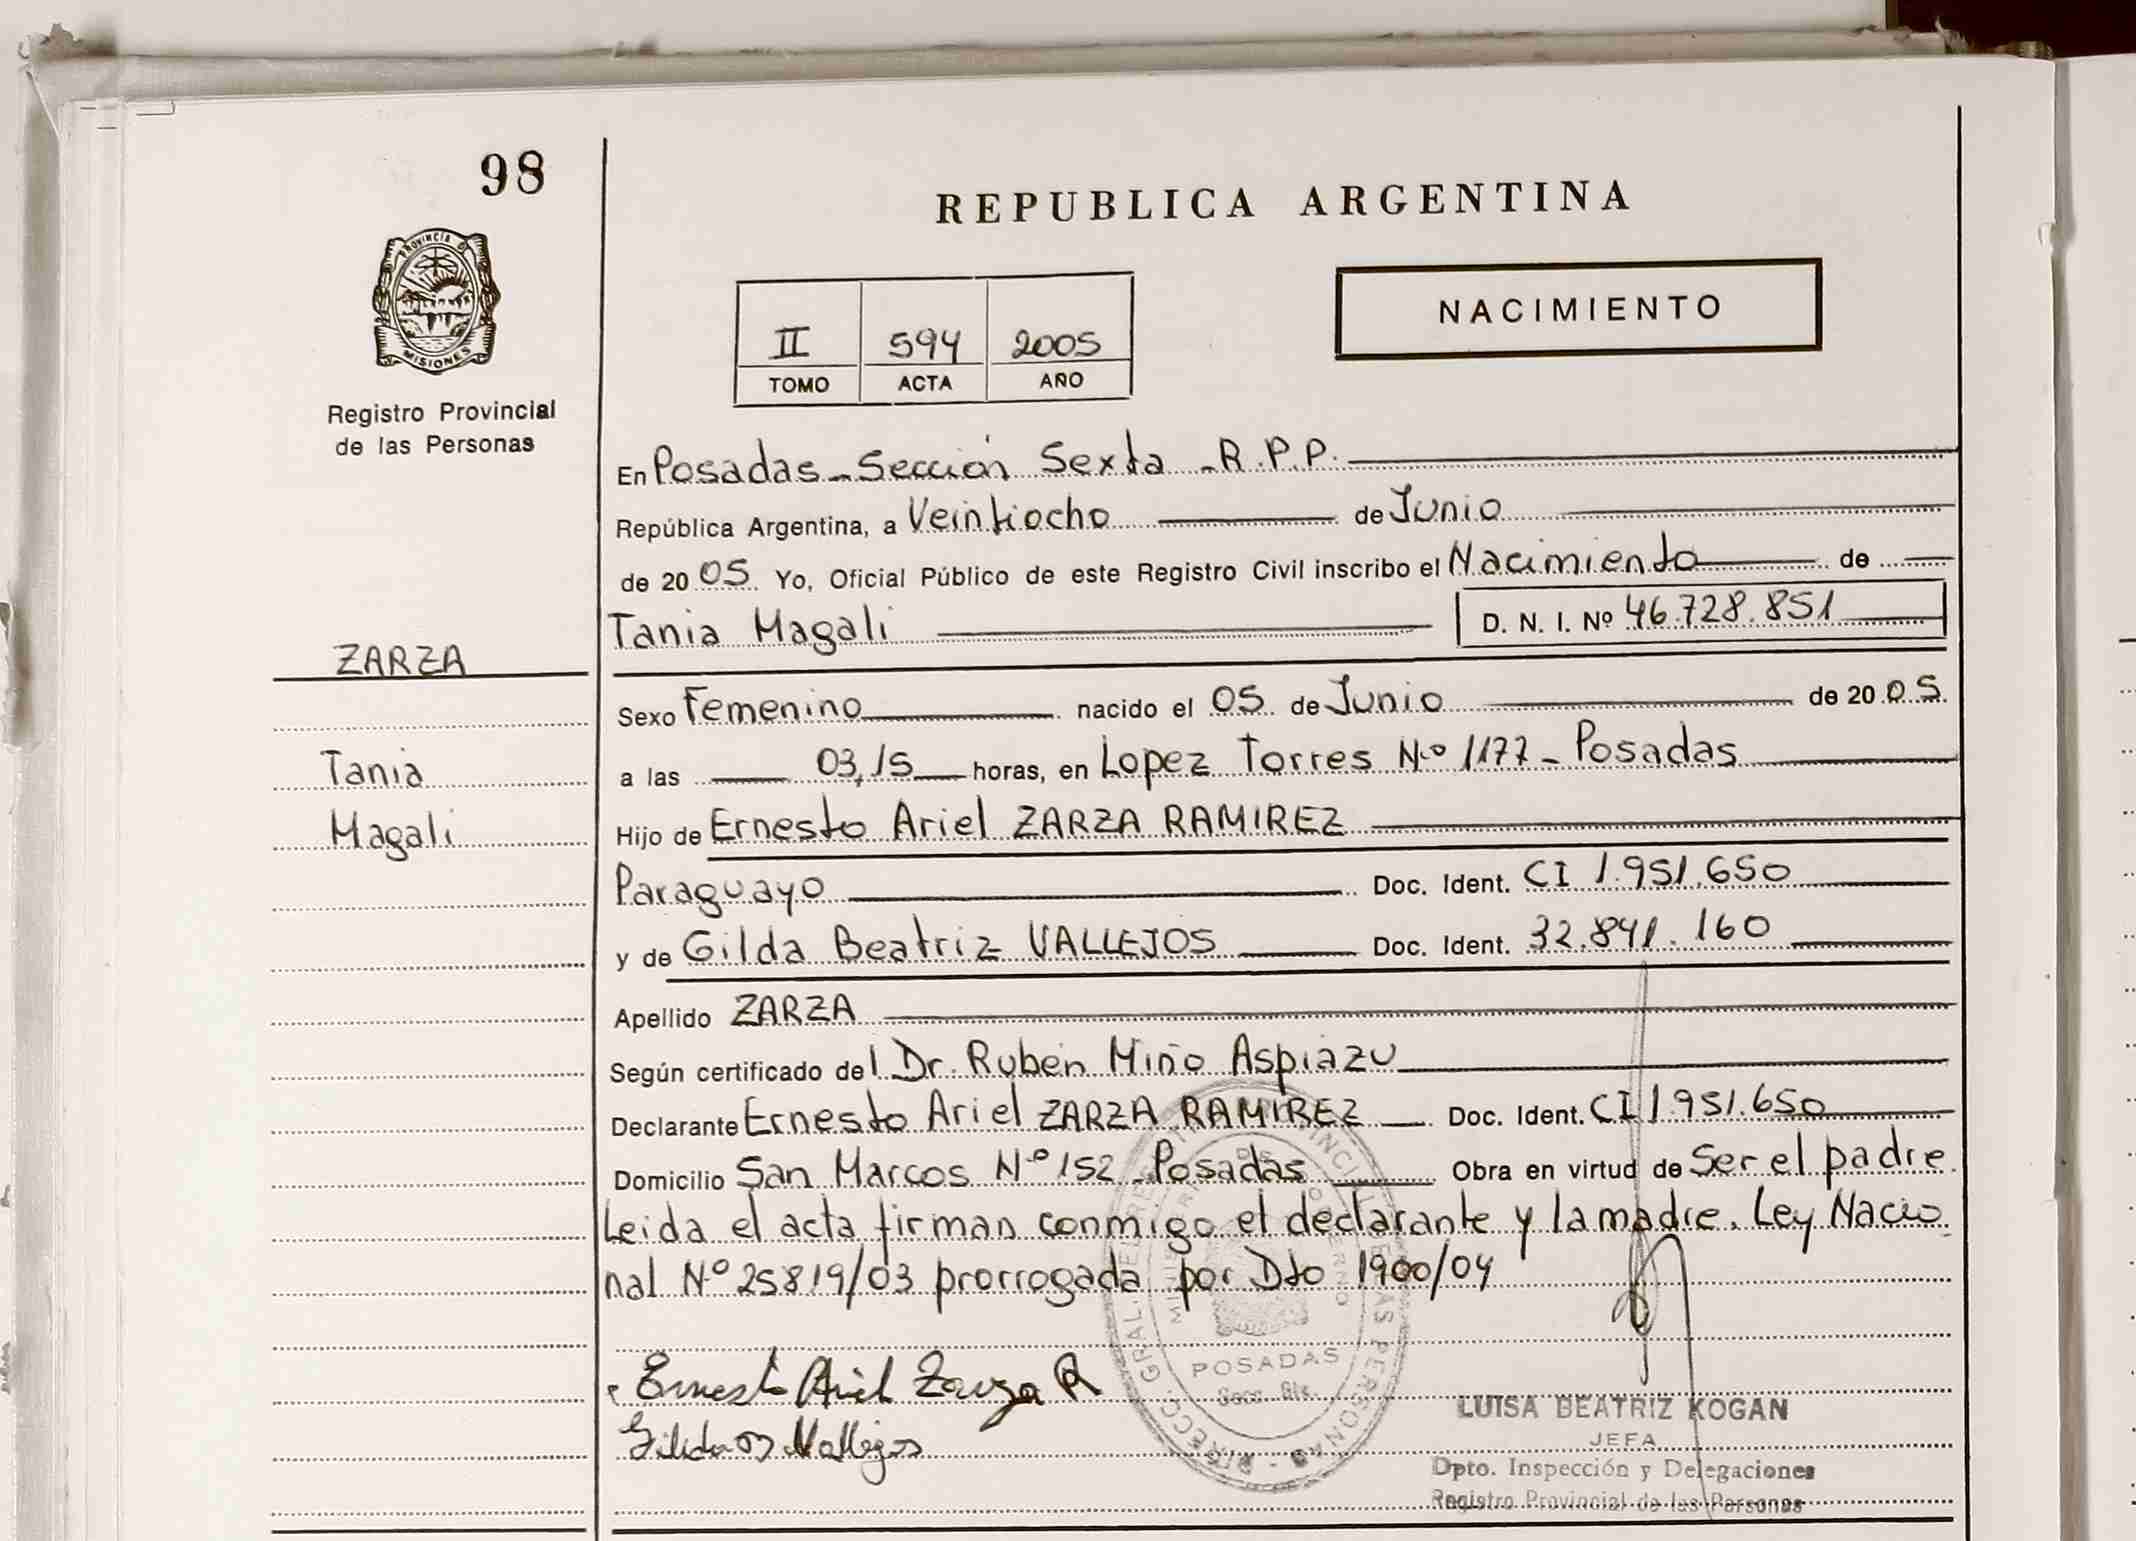 98
REPUBLICA ARGENTINA
PROVINCIA DE
MISIONES
Registro Provincial
de las Personas
II 594 2005
TOMO ACTA AÑO
NACIMIENTO
En Posadas - Sección Sexta - R.P.P.
República Argentina, a Veintiocho de Junio
de 2005. Yo, Oficial Público de este Registro Civil inscribo el Nacimiento de
Tania Magali D. N. I. Nº 46.728.851
ZARZA
Sexo Femenino nacido el 05 de Junio de 2005.
Tania
a las 03,15 horas, en Lopez Torres Nº 1177 - Posadas
Magali
Hijo de Ernesto Ariel ZARZA RAMIREZ
Paraguayo Doc. Ident. CI 1.951.650
y de Gilda Beatriz VALLEJOS Doc. Ident. 32.841.160
Apellido ZARZA
Según certificado del Dr. Rubén Miño Aspiazu
Declarante Ernesto Ariel ZARZA RAMIREZ Doc. Ident. CI 1.951.650
Domicilio San Marcos Nº 152 - Posadas Obra en virtud de Ser el padre.
Leida el acta firman conmigo el declarante y la madre. Ley Nacio
nal Nº 25819/03 prorrogada por Dto 1900/04
POSADAS
Ernesto Ariel Zarza R
Vallejos
LUISA BEATRIZ KOGAN
JEFA
Dpto. Inspección y Delegaciones
Registro Provincial de las Personas